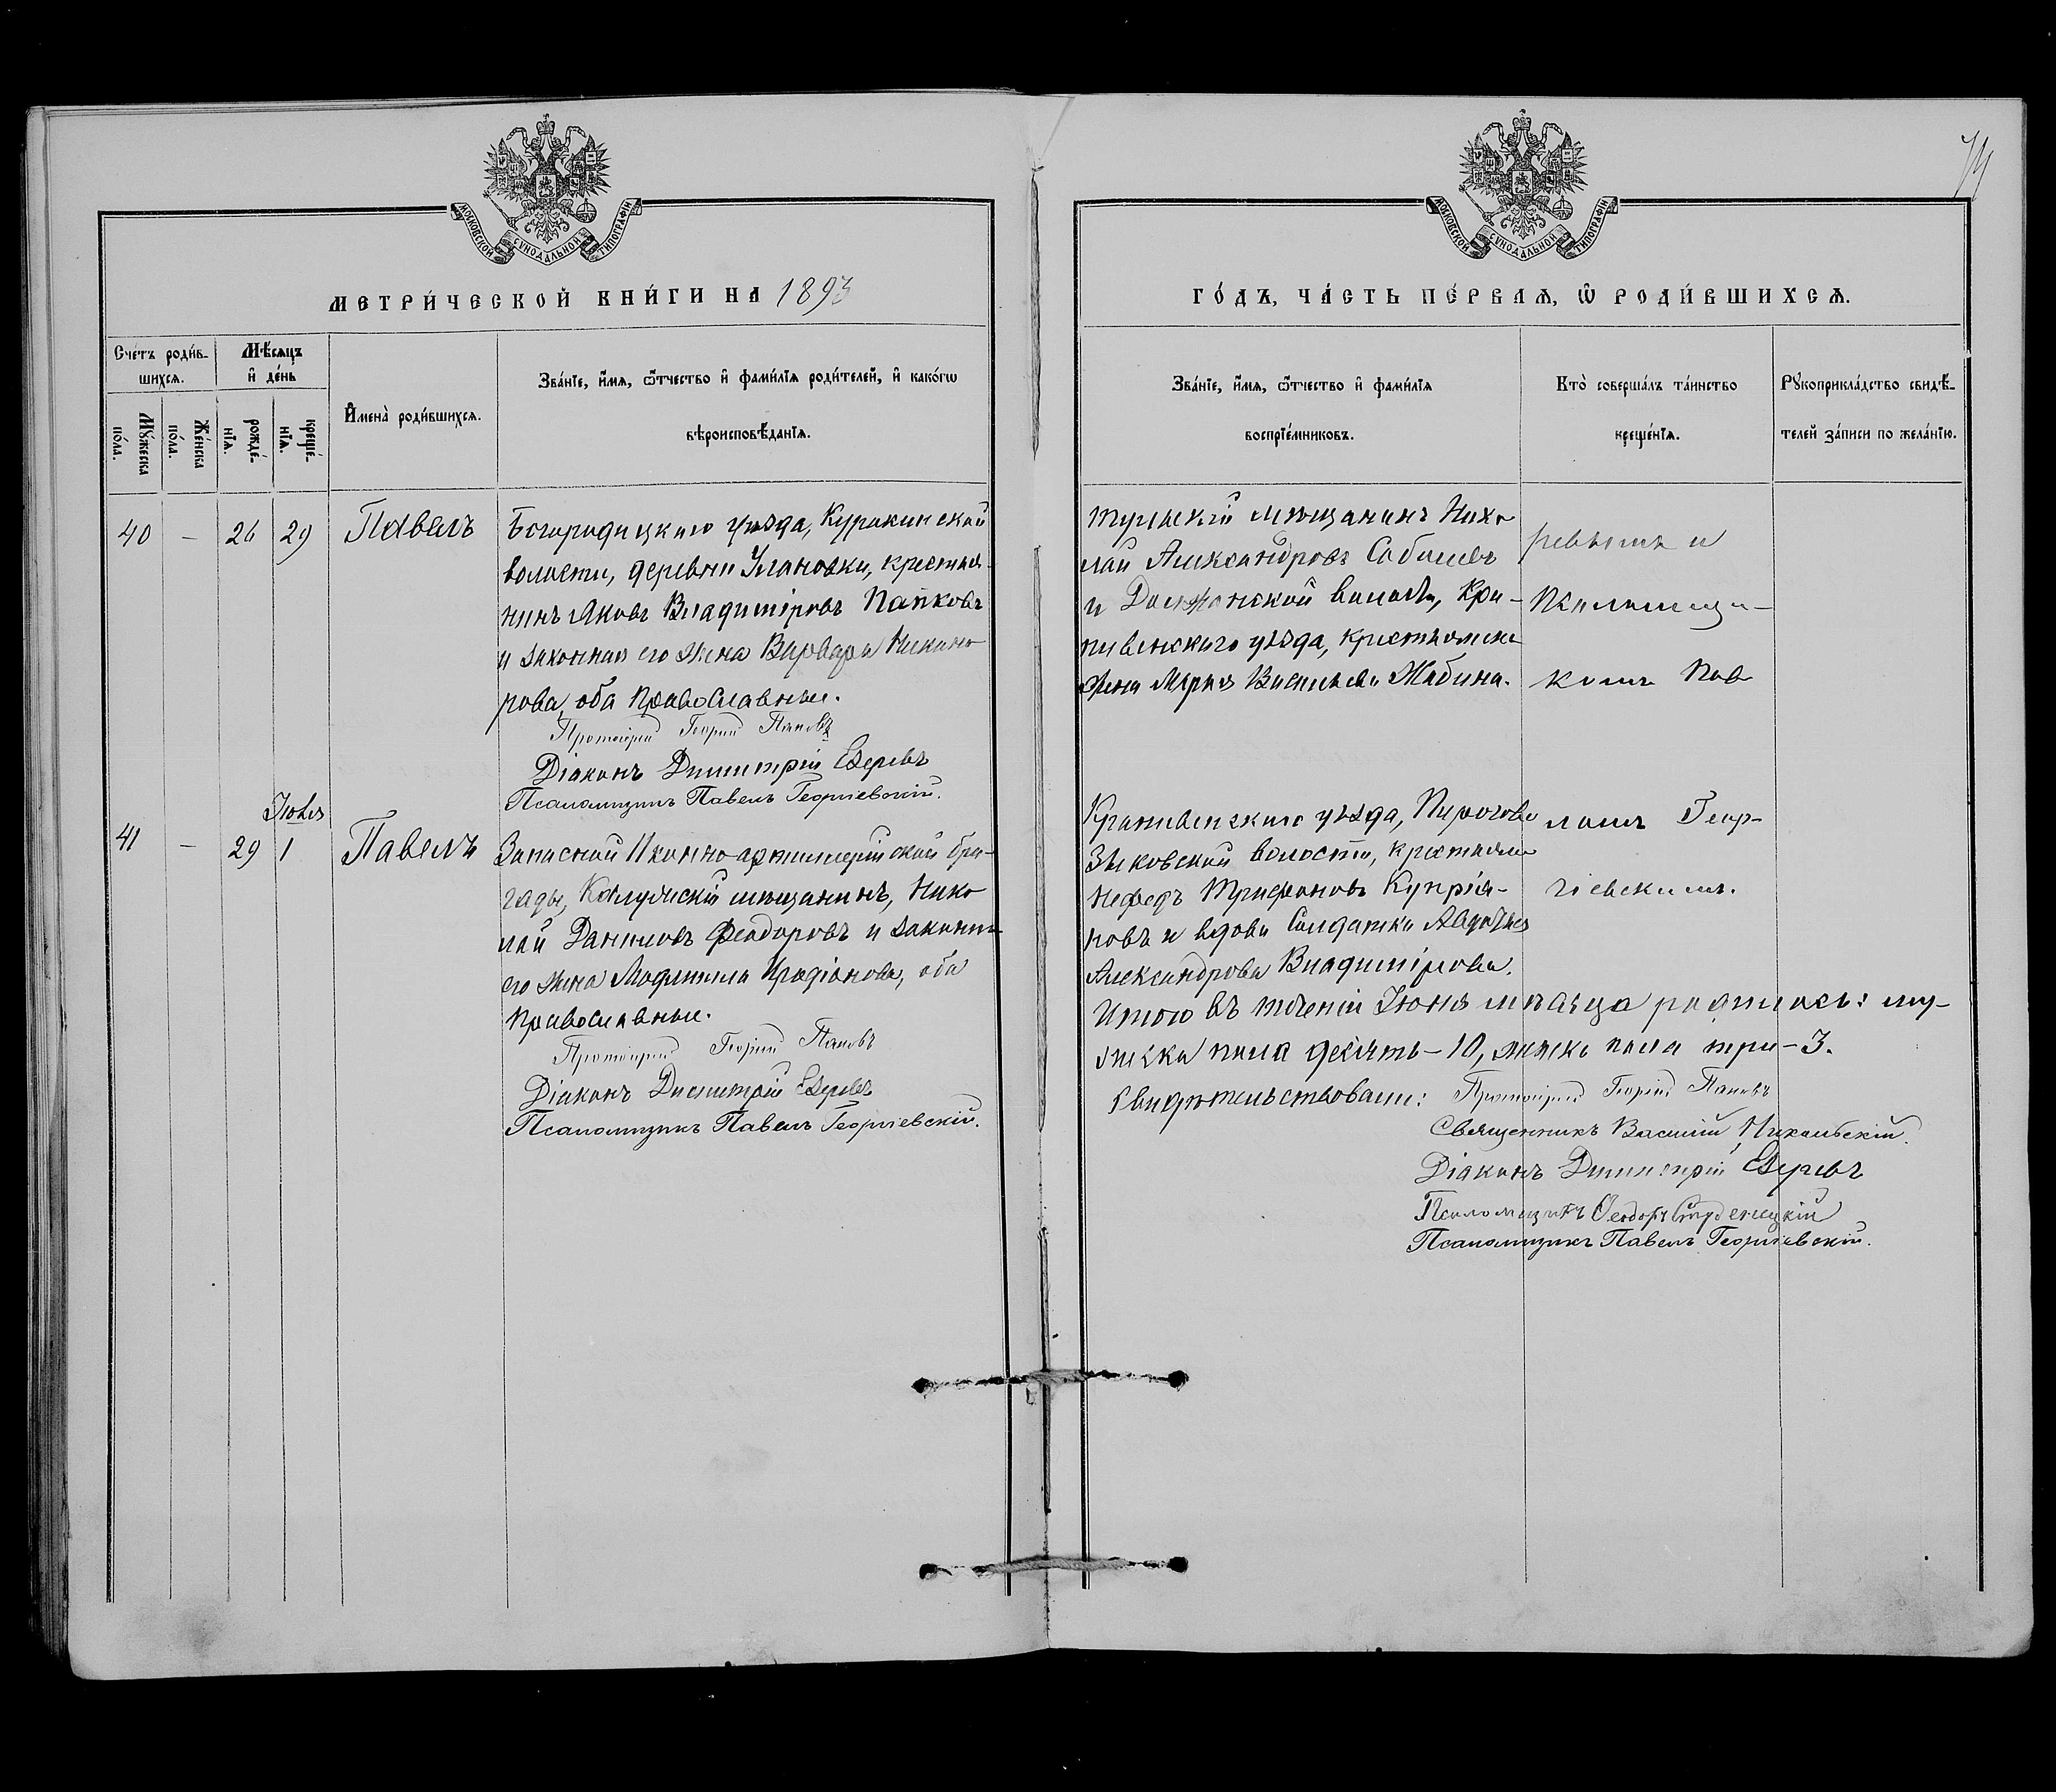 74
МОСКОВСКОЙ СѴНОДАЛЬНОЙ ТИПОГРАФІИ
МОСКОВСКОЙ СѴНОДАЛЬНОЙ ТИПОГРАФІИ
МЕТРИ́ЧЕСКОЙ КНИ́ГИ НА 1893
ГО́ДЪ, ЧА́СТЬ ПЕ́РВАѦ, Ѡ҆ РОДИ́ВШИХСѦ.
Сче́тъ роди́в-
шихсѧ.
Мꙋ́жеска
по́ла.
Же́нска
по́ла.
Мѣ́сѧцъ
и҆ де́нь
рожде́-
нїѧ.
креще́-
нїѧ.
И҆мена̀ роди́вшихсѧ.
Зва́нїе, и҆́мѧ, ѻ҆́тчество и҆ фами́лїѧ роди́телей, и҆ како́гѡ
вѣроисповѣ́данїѧ.
Зва́нїе, и҆́мѧ, ѻ҆́тчество и҆ фами́лїѧ
воспрїе́мниковъ.
Кто̀ соверша́лъ та́инство
креще́нїѧ.
Рꙋкоприкла́дство свидѣ́-
телей за́писи по жела́нїю.
40 – 26 29 Павелъ
Богородицкаго уѣзда, Куракинской
волости, деревни Улановки, крестья-
нинъ Яковъ Владиміровъ Папковъ
и законная его жена Варвара Никано
рова, оба Православные.
Протоіерей Георгій Пановъ
Діаконъ Димитрій Езеревъ
Псаломщикъ Павелъ Георгіевскій.
Тульскій мѣщанинъ Нико
лай Александровъ
и волости, Кра-
пивенскаго уѣзда, крестьянина
жена Марья Васильева Жабина.
ревымъ и
Псаломщи-
комъ Пав
Іюля
41 – 29 1 Павелъ
Запасной Конно-артиллерійской бри-
гады, Калужскій мѣщанинъ, Нико
лай Даниловъ Ѳеодоровъ и законная
его жена Иродіонова, оба
Православные.
Протоіерей Георгій Пановъ
Діаконъ Димитрій Езеревъ
Псаломщикъ Павелъ Георгіевскій.
Крапивенскаго уѣзда, Пирогово
Зыковской волости, крестьянинъ
Нефедъ Трифоновъ Купрія-
новъ и вдова Солдатка Авдотья
Александрова Владимірова.
ломъ Геор-
гіевскимъ.
Итого въ теченіи Іюня мѣсяца родилось: му-
жеска пола десять – 10, женска пола три – 3.
Свидѣтельствовали: Протоіерей Георгій Пановъ
Священникъ Василій Никольскій.
Діаконъ Димитрій Езеревъ
Псаломщикъ Ѳеодоръ
Псаломщикъ Павелъ Георгіевскій.